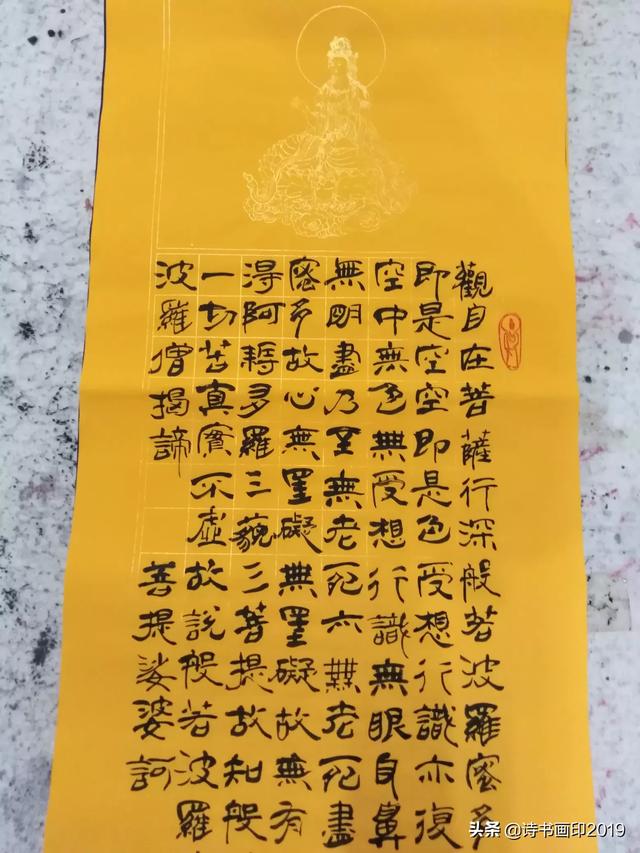 觀自在菩薩行深般若波羅蜜多
即是空空即是色受想行識亦復
空中無色無受想行識無眼耳鼻
無明盡乃至無老死亦無老死盡
蜜多故心無罣礙無罣礙故無有
得阿耨多羅三藐三菩提故知般
一切苦真實不虛故說般若波羅
波羅僧揭諦 菩提娑婆訶
头条 @诗书画印2019